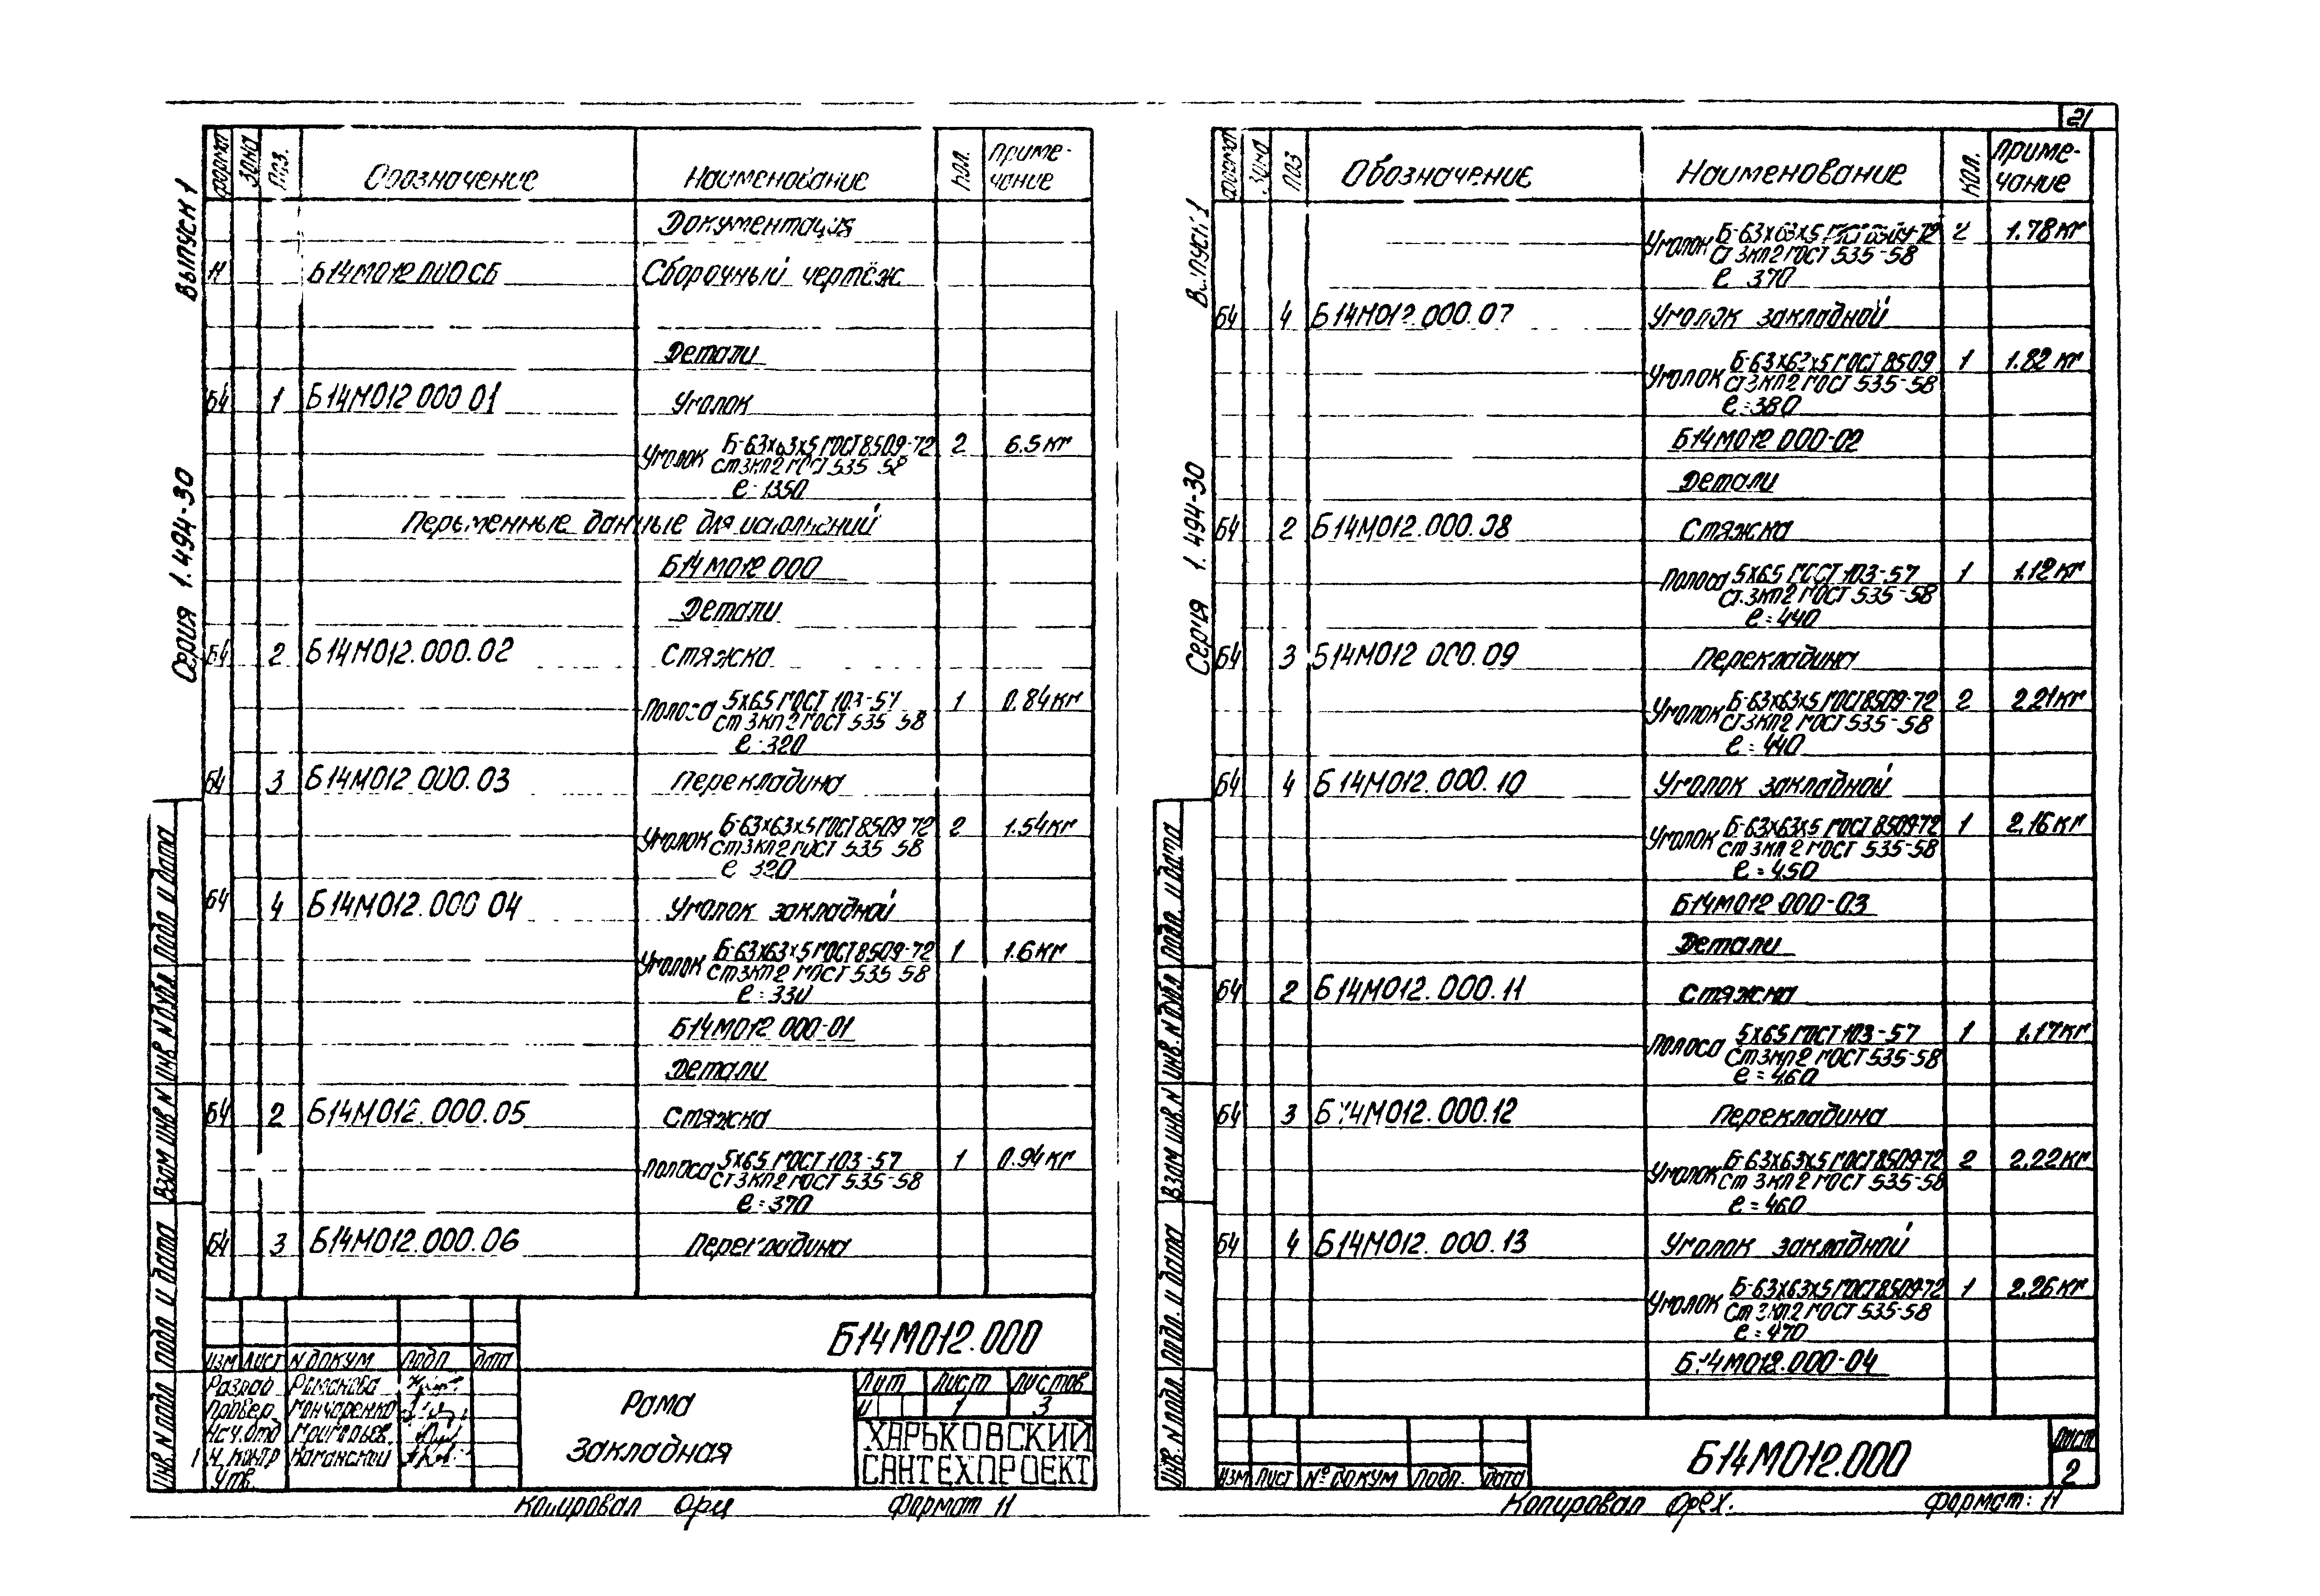 21
Выпуск 1
Серия 1.494-30
Формат Зона Поз. Обозначение Наименование Кол. Приме-
чание
Документация
11 Б14М012.000СБ Сборочный чертёж
Детали
Б4 1 Б14М012.000.01 Уголок
Уголок Б-63х63х5 ГОСТ 8509-72 2 6.5кг
Ст3кп2 ГОСТ 535-58
ℓ=1350
Переменные данные для исполнений
Б14М012.000
Детали
Б4 2 Б14М012.000.02 Стяжка
Полоса 5х65 ГОСТ 103-57 1 0.84кг
Ст3кп2 ГОСТ 535-58
ℓ=320
Б4 3 Б14М012.000.03 Перекладина
Уголок Б-63х63х5 ГОСТ 8509-72 2 1.54кг
Ст3кп2 ГОСТ 535-58
ℓ 320
Б4 4 Б14М012.000.04 Уголок закладной
Уголок Б-63х63х5 ГОСТ 8509-72 1 1.6кг
Ст3кп2 ГОСТ 535-58
ℓ=330
Б14М012.000-01
Детали
Б4 2 Б14М012.000.05 Стяжка
Полоса 5х65 ГОСТ 103-57 1 0.94кг
Ст3кп2 ГОСТ 535-58
ℓ=370
Б4 3 Б14М012.000.06 Перекладина
Инв. N подл Подп и дата Взам инв N Инв N дубл Подп и дата
Б14М012.000
Изм Лист N докум Подп Дата
Разраб Романова
Провер Гончаренко
Нач.отд Григорьев
Н.контр Каганский
Утв.
Рама
Закладная
Лит Лист Листов
И 1 3
ХАРЬКОВСКИЙ
САНТЕХПРОЕКТ
Копировал Формат 11
Выпуск 1
Серия 1.494-30
Формат Зона Поз Обозначение Наименование Кол. Приме-
чание
Уголок Б-63х63х5 ГОСТ 8509-72 2 1.78кг
Ст3кп2 ГОСТ 535-58
ℓ 370
Б4 4 Б14М012.000.07 Уголок закладной
Уголок Б-63х63х5 ГОСТ 8509 1 1.82 кг
Ст3кп2 ГОСТ 535-58
ℓ=380
Б14М012.000-02
Детали
Б4 2 Б14М012.000.08 Стяжка
Полоса 5х65 ГОСТ 103-57 1 1.12кг
Ст.3кп2 ГОСТ 535-58
ℓ=440
Б4 3 Б14М012.000.09 Перекладина
Уголок Б-63х63х5 ГОСТ 8509-72 2 2.21кг
Ст3кп2 ГОСТ 535-58
ℓ=440
Б4 4 Б14М012.000.10 Уголок закладной
Уголок Б-63х63х5 ГОСТ 8509-72 1 2.16кг
Ст3кп2 ГОСТ 535-58
ℓ=450
Б14М012.000-03
Детали
Б4 2 Б14М012.000.11 Стяжка
Полоса 5х65 ГОСТ 103-57 1 1.17кг
Ст3кп2 ГОСТ 535-58
ℓ=460
Б4 3 Б14М012.000.12 Перекладина
Уголок Б-63х63х5 ГОСТ 8509-72 2 2.22кг
Ст3кп2 ГОСТ 535-58
ℓ=460
Б4 4 Б14М012.000.13 Уголок закладной
Уголок Б-63х63х5 ГОСТ 8509-72 1 2.26кг
Ст3кп2 ГОСТ 535-58
ℓ=470
Б14М012.000-04
Инв. N подл. Подп. и дата Взам инв. N Инв. N дубл Подп. и дата
Изм Лист № докум Подп. Дата
Б14М012.000
Лист
2
Копировал Орех. Формат: 11